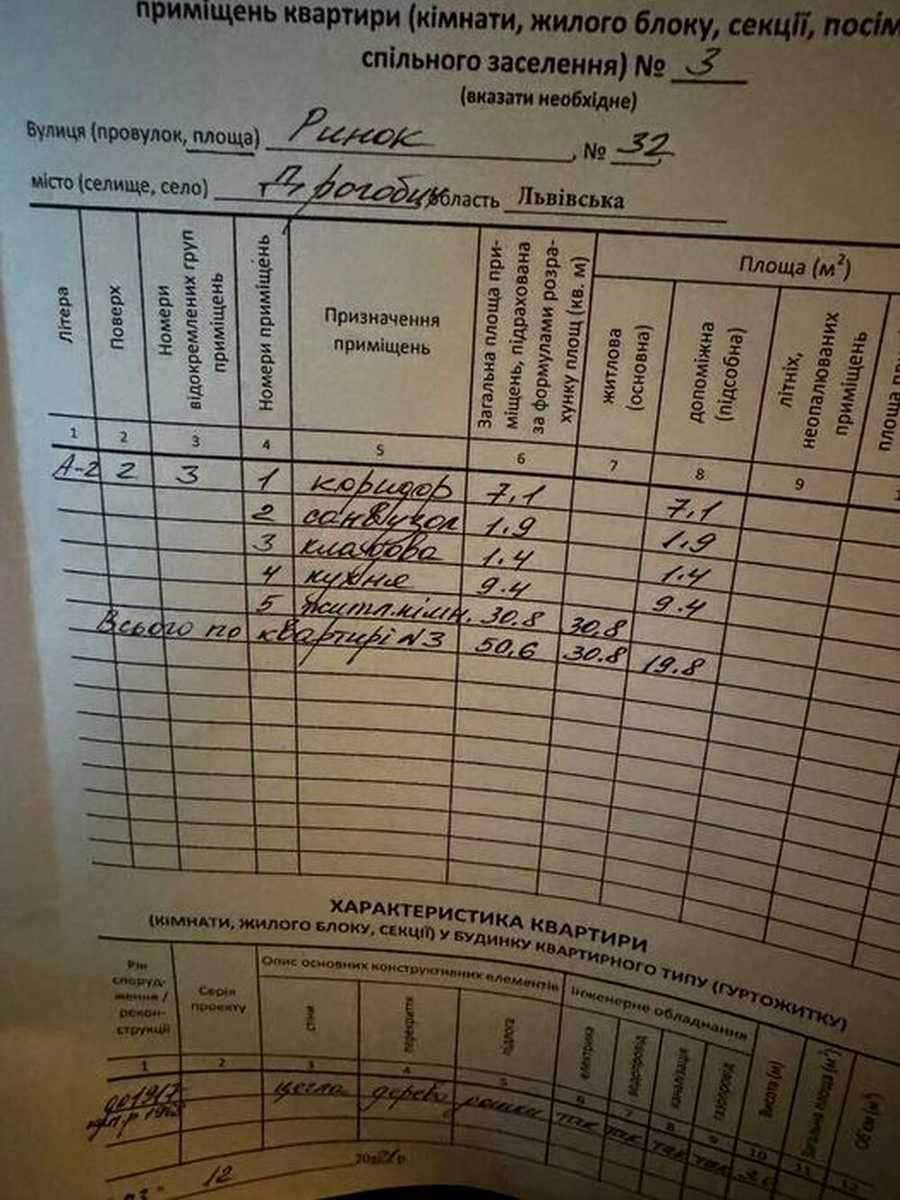 приміщень квартири (кімнати, жилого блоку, секції, посім
спільного заселення) № 3
(вказати необхідне)
Вулиця (провулок, площа) Ринок, № 32
місто (селище, село) Дрогобич область Львівська
Літера Поверх Номери відокремлених груп приміщень Номери приміщень Призначення приміщень Загальна площа при-міщень, підрахована за формулами розра-хунку площ (кв. м) Площа (м²)
житлова (основна) допоміжна (підсобна) літніх, неопалюваних приміщень площа при
1 2 3 4 5 6 7 8 9 1
А-2 2 3 1 коридор 7,1 7,1
2 санвузол 1.9 1.9
3 кладова 1.4 1.4
4 кухня 9.4 9.4
5 житл.кімн. 30.8 30.8
Всього по квартирі N3 50.6 30.8 19.8
ХАРАКТЕРИСТИКА КВАРТИРИ
(КІМНАТИ, ЖИЛОГО БЛОКУ, СЕКЦІЇ) У БУДИНКУ КВАРТИРНОГО ТИПУ (ГУРТОЖИТКУ)
Рік споруд-ження / рекон-струкції Серія проекту Опис основних конструктивних елементів Інженерне обладнання Висота (м) Загальна площа (м²) Об'єм (м³)
стіни перекриття підлога електрика водопровід каналізація газопровід
1 2 3 4 5 6 7 8 9 10 11 12
до 1917 цегла дерево дошки так так так так
12 20